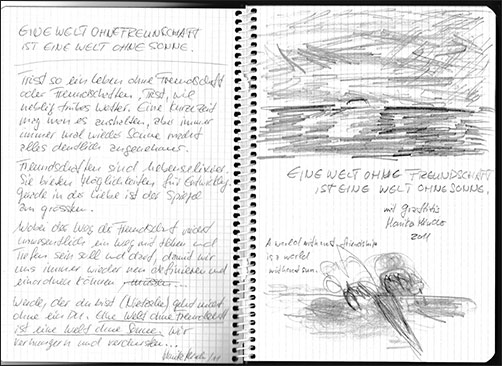 EINE WELT OHNE FREUNDSCHAFT
IST EINE WELT OHNE SONNE.
Trist so ein Leben ohne Freundschaft
oder Freundschaften, Trist, wie
neblig trübes Wetter. Eine kurze Zeit
mag man es aushalten, aber immer
immer mal wieder Sonne macht
alles deutlich angenehmer.
Freundschaften sind
Sie bieten Möglichkeiten für
Gerade in der Liebe ist der Spiegel
am grössten.
Wobei das Weg der Freundschaft nicht
ein Weg mit Höhen und
Tiefen sein soll und darf, damit wir
uns immer wieder neu definieren und
einordnen können
Werde, der du bist (Nietzsche) geht nicht
ohne ein Du. Eine Welt ohne Freundschaft
ist eine Welt ohne Sonne, wir
verhungern und verdursten...
EINE WELT OHNE FREUNDSCHAFT
IST EINE WELT OHNE SONNE.
mit
2011
A world without friendship
is a world
without sun.